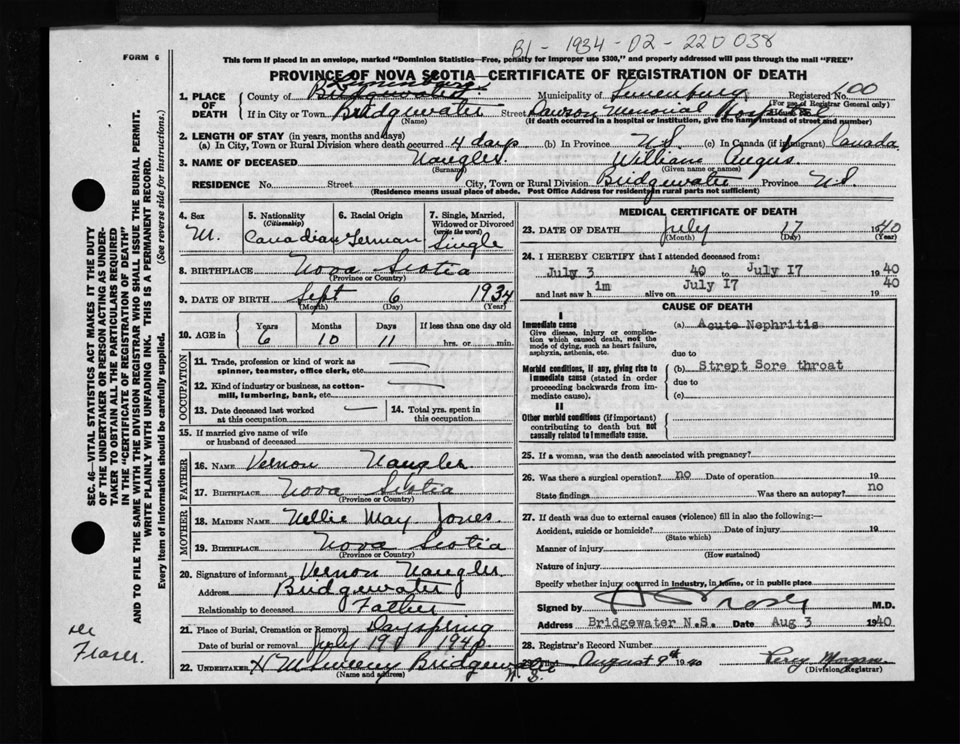 B1 - 1934 - 02 - 220 038
FORM 6
This form if placed in an envelope, marked "Dominion Statistics—Free, penalty for improper use $300," and properly addressed will pass through the mail "FREE"
PROVINCE OF NOVA SCOTIA—CERTIFICATE OF REGISTRATION OF DEATH
1. PLACE OF DEATH
County of Bridgewater Lunenburg Municipality of Lunenburg Registered No. 600
(For use of Registrar General only)
If in City or Town Bridgewater Street Dawson Memorial Hospital
(Name) (If death occurred in a hospital or institution, give the name instead of street and number)
2. LENGTH OF STAY (in years, months and days)
(a) In City, Town or Rural Division where death occurred 4 days (b) In Province N.S. (c) In Canada (if immigrant) Canada
3. NAME OF DECEASED Naugler. William Angus.
(Surname) (Given name or names)
RESIDENCE No. Street City, Town or Rural Division Bridgewater Province N.S.
(Residence means usual place of abode. Post Office Address for residents in rural parts not sufficient)
4. Sex M.
5. Nationality (Citizenship) Canadian
6. Racial Origin German
7. Single, Married, Widowed or Divorced (write the word) Single
8. BIRTHPLACE Nova Scotia
(Province or Country)
9. DATE OF BIRTH Sept 6 1934
(Month) (Day) (Year)
10. AGE in Years Months Days If less than one day old
6 10 11 hrs. or min.
OCCUPATION
11. Trade, profession or kind of work as spinner, teamster, office clerk, etc.
12. Kind of industry or business, as cotton-mill, lumbering, bank, etc.
13. Date deceased last worked at this occupation —
14. Total yrs. spent in this occupation
15. If married give name of wife or husband of deceased
FATHER
16. NAME Vernon Naugler
17. BIRTHPLACE Nova Scotia
(Province or Country)
MOTHER
18. MAIDEN NAME Nellie May Jones.
19. BIRTHPLACE Nova Scotia
(Province or Country)
20. Signature of informant Vernon Naugler
Address Bridgewater
Relationship to deceased Father
21. Place of Burial, Cremation or Removal Dayspring
Date of burial or removal July 19 1940
22. UNDERTAKER Bridgewater
(Name and address) N.S.
MEDICAL CERTIFICATE OF DEATH
23. DATE OF DEATH July 17 1940
(Month) (Day) (Year)
24. I HEREBY CERTIFY that I attended deceased from:
July 3 40 to July 17 1940
and last saw him alive on July 17 1940
CAUSE OF DEATH
I
Immediate cause (a) Acute Nephritis
Give disease, injury or complication which caused death, not the mode of dying, such as heart failure, asphyxia, asthenia, etc.
due to
Morbid conditions, if any, giving rise to immediate cause (stated in order proceeding backwards from immediate cause). (b) Strept Sore throat
due to
(c)
II
Other morbid conditions (if important) contributing to death but not causally related to immediate cause.
25. If a woman, was the death associated with pregnancy?
26. Was there a surgical operation? no Date of operation 19
State findings Was there an autopsy? no
27. If death was due to external causes (violence) fill in also the following:—
Accident, suicide or homicide? Date of injury 19
(State which)
Manner of injury
(How sustained)
Nature of injury
Specify whether injury occurred in industry, in home, or in public place
Signed by M.D.
Address Bridgewater N.S. Date Aug 3 1940
28. Registrar's Record Number
August 9th 1940 Percy Morgan
(Division Registrar)
SEC. 46—VITAL STATISTICS ACT MAKES IT THE DUTY
OF THE UNDERTAKER OR PERSON ACTING AS UNDERTAKER TO OBTAIN ALL THE PARTICULARS REQUIRED
IN THE "CERTIFICATE OF REGISTRATION OF DEATH"
AND TO FILE THE SAME WITH THE DIVISION REGISTRAR WHO SHALL ISSUE THE BURIAL PERMIT.
WRITE PLAINLY WITH UNFADING INK. THIS IS A PERMANENT RECORD.
Every item of information should be carefully supplied.
(See reverse side for instructions.)
Dr
Fraser.